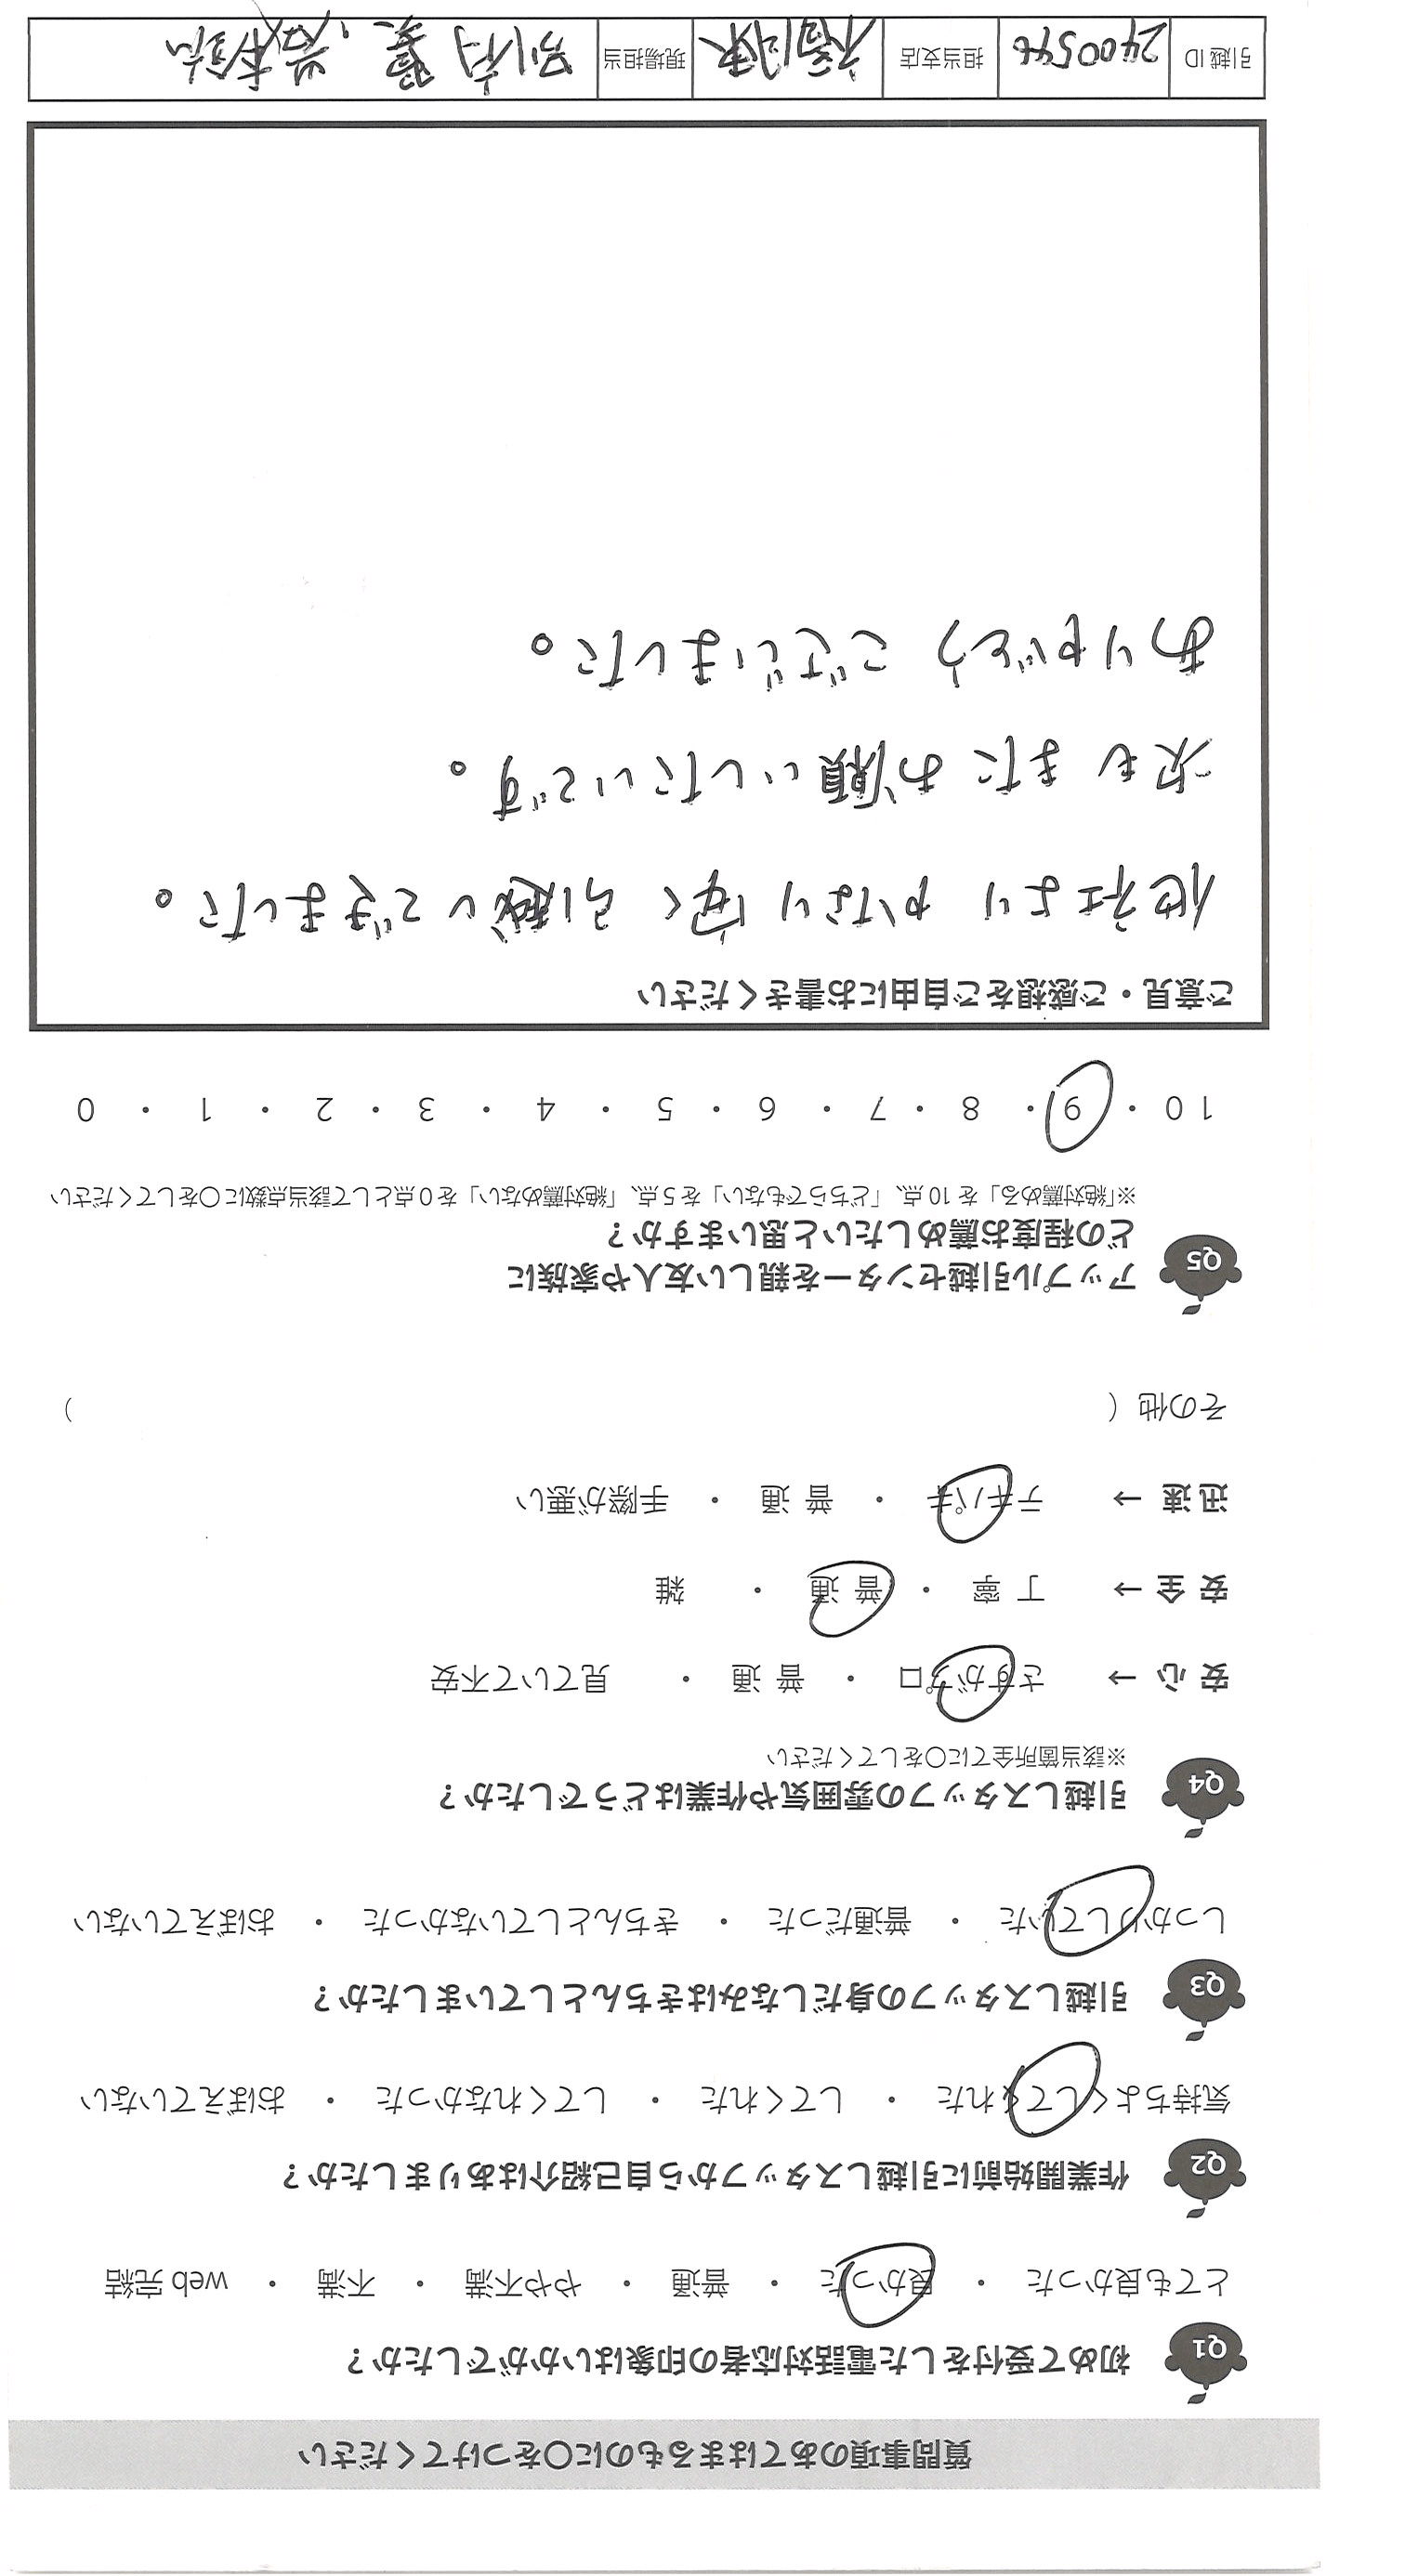 質問事項のあてはまるものに○をつけてください
Q1 初めて受付をした電話対応者の印象はいかがでしたか？
とても良かった ・ 良かった ・ 普通 ・ やや不満 ・ 不満 ・ web完結
Q2 作業開始前に引越しスタッフから自己紹介はありましたか？
気持ちよくしてくれた ・ してくれた ・ してくれなかった ・ おぼえていない
Q3 引越しスタッフの身だしなみはきちんとしていましたか？
しっかりしていた ・ 普通だった ・ きちんとしていなかった ・ おぼえていない
Q4 引越しスタッフの雰囲気や作業はどうでしたか？
※該当箇所全てに○をしてください
安心→ さすがプロ ・ 普通 ・ 見ていて不安
安全→ 丁寧 ・ 普通 ・ 雑
迅速→ テキパキ ・ 普通 ・ 手際が悪い
その他（ ）
Q5 アップル引越センターを親しい友人や家族に
どの程度お薦めしたいと思いますか？
※「絶対薦める」を10点、「どちらでもない」を5点、「絶対薦めない」を0点として該当点数に○をしてください
10 ・ 9 ・ 8 ・ 7 ・ 6 ・ 5 ・ 4 ・ 3 ・ 2 ・ 1 ・ 0
ご意見・ご感想をご自由にお書きください
他社より かなり安く 引越しできました。
次も またお願いしたいです。
ありがとう ございました。
引越ID 2400546 担当支店 現場担当